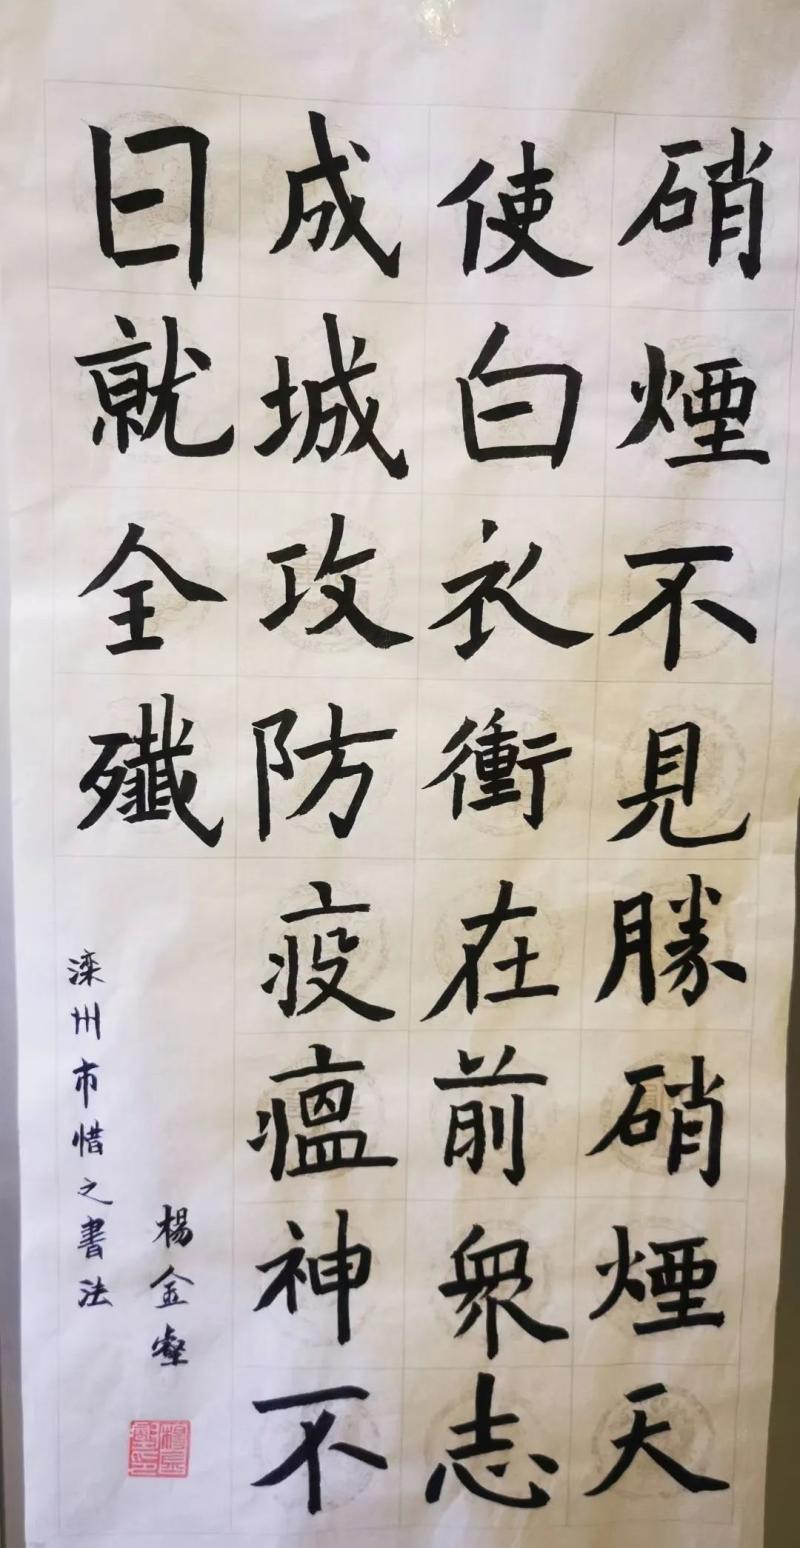 硝煙不見勝硝煙天
使白衣衝在前衆志
成城攻防疫瘟神不
日就全殲
楊金壑
滦州市惜之書法